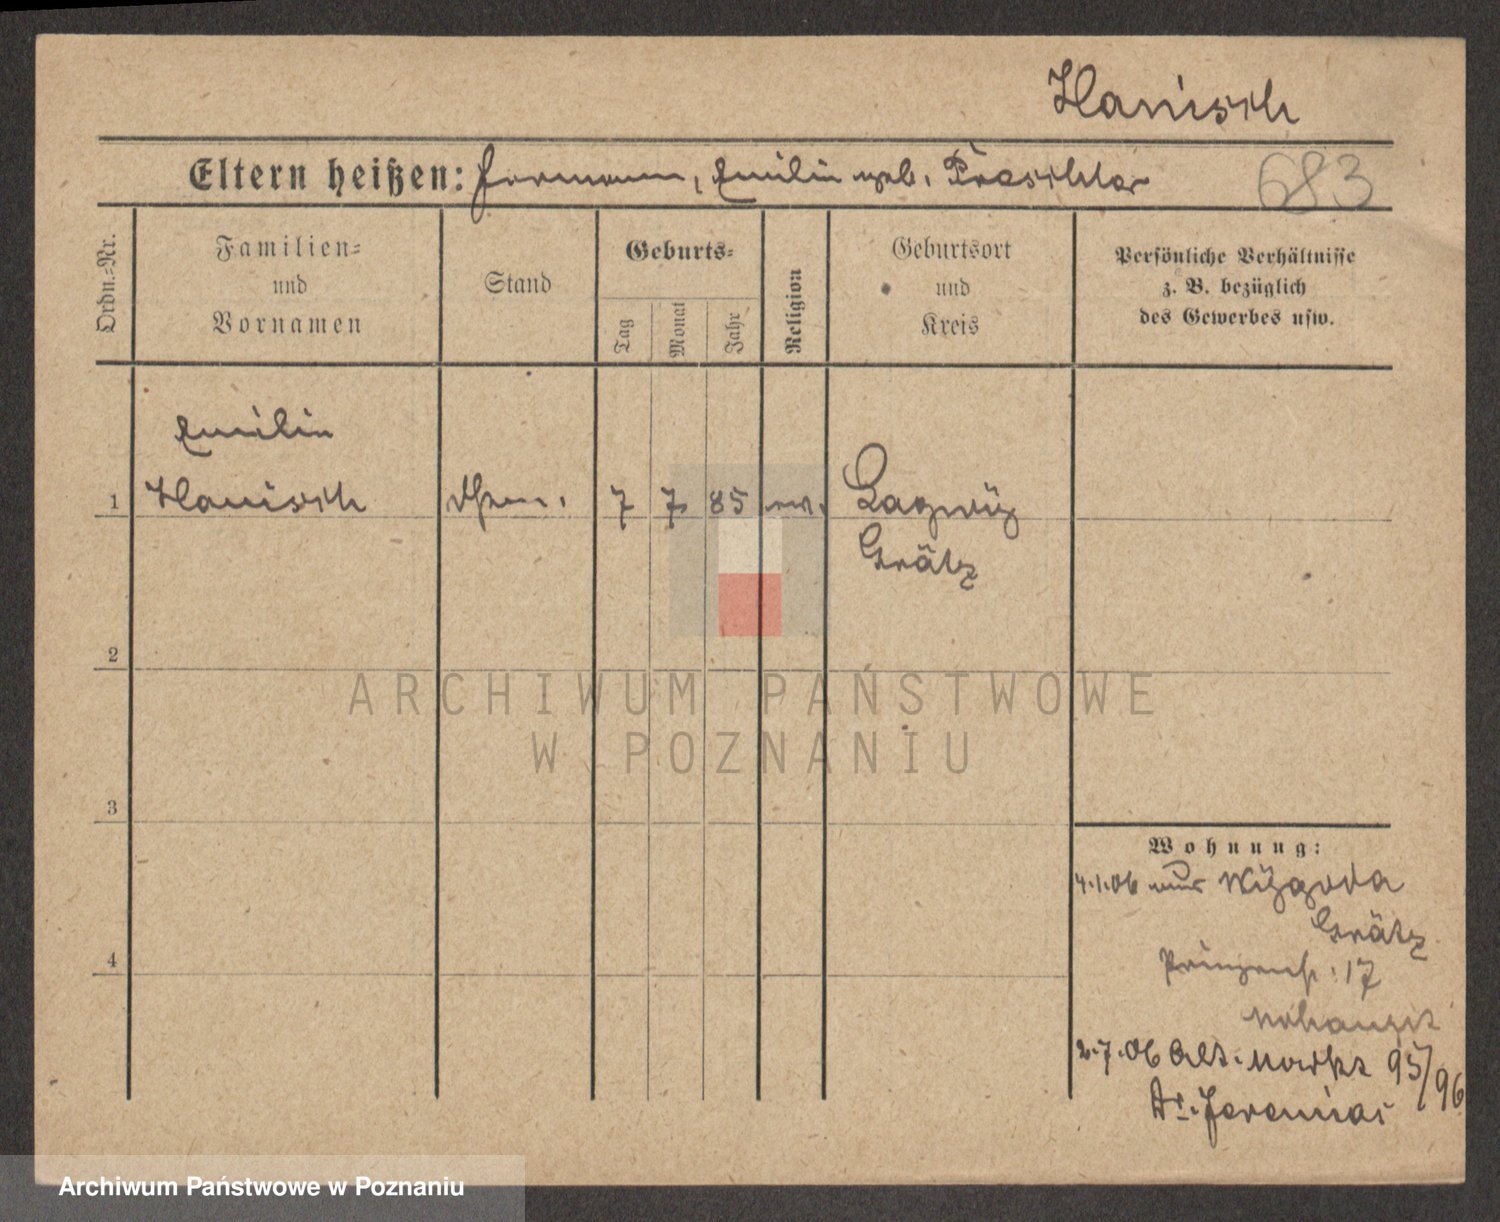 Hanisch
Eltern heißen: Hermann, Emilie geb.
683
Ordn.-Nr.
Familien-
und
Vornamen
Stand
Geburts-
Tag
Monat
Jahr
Religion
Geburtsort
und
Kreis
Persönliche Verhältnisse
z. B. bezüglich
des Gewerbes usw.
Emilie
1 Hanisch 7 7 85 ev. Lagwy
Grätz
2
ARCHIWUM PAŃSTWOWE
W POZNANIU
3
Wohnung:
4.1.06 aus
Grätz
Prinzenstr. 17
2.7.06 Alt. Markt 95/96
Dr. Jeremias
4
Archiwum Państwowe w Poznaniu